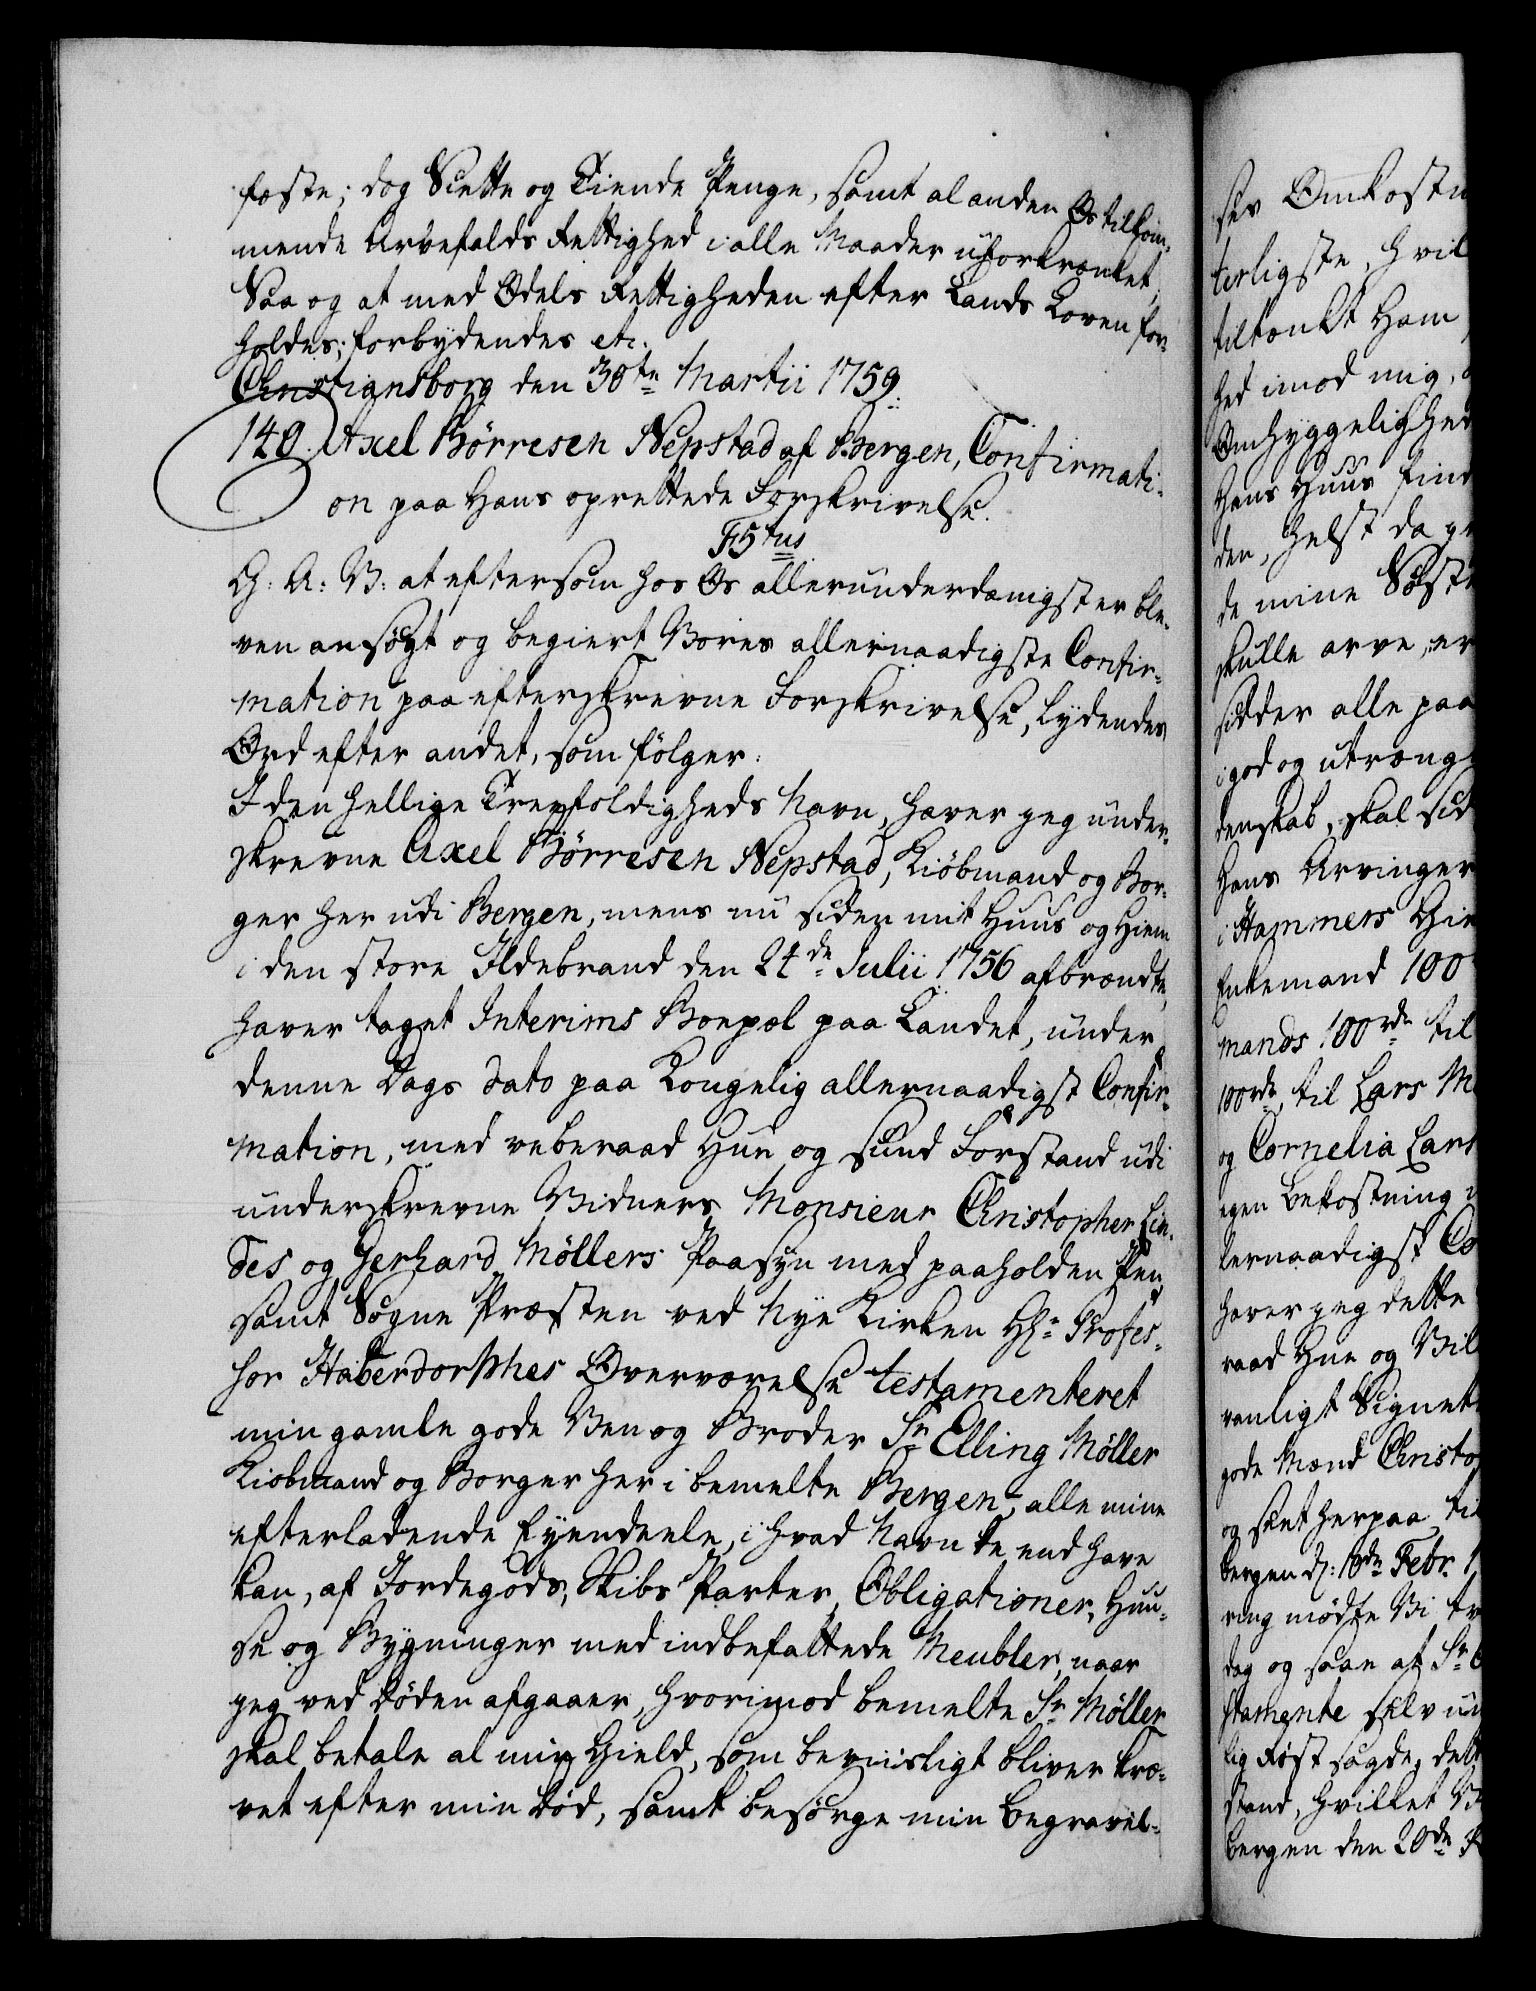 fæste; dog Siette og Tiende Penge, samt al anden Os tilkom¬
mende Arvefalds Rettighed i alle Maader uforkrænket,
Saa og at med Odels Rettigheden efter Lands Loven for¬
holdes; forbydendes etc.
Christiansborg den 30te Martii 1759.
140. Axel Börresen Nepstad af Bergen, Confirmati¬
on paa Hans oprettede Forskrivelse.
F5tus
G: A: V: at eftersom hos Os allerunderdanigst er ble¬
ven ansögt og begiert Vores allernaadigste Confir¬
mation paa efterskrevne Forskrivelse, lydendes
Ord efter andet, som fölger:
I den hellige Treefoldigheds Navn, haver jeg under¬
skrevne Axel Börresen Nepstad, Kiöbmand og Bor¬
ger her udi Bergen, mens nu siden mit Huus og Hiem
i den store Ildebrand den 24de Julii 1756 afbrændte,
haver taget Interims Boepæl paa Landet, under
denne Dags Dato paa Kongelig allernaadigst Confir¬
mation, med velberaad Hue og sund Forstand udi
underskrevne Vidners Monsieur Christopher Lin¬
des og Gerhard Möllers Paasyn med paaholden Pen
samt Sogne Præsten ved Nye Kirken Hr: Profes¬
sor Haberdorphes Overværelse testamenteret
min gamle gode Ven og Broder Sr Elling Möller
Kiöbmand og Borger her i bemelte Bergen, alle mine
efterladende Eyendeele, i hvad Navn de end have
kan, af Jordegods, Skibs Parter, Obligationer, Huu¬
se og Bygninger med indbefattede Meubler, naar
jeg ved Döden afgaaer, hvorimod bemelte Sr Möller
skal betale al min Gield, som beviisligt bliver kræ¬
vet efter min Död, samt besörge min Begravel¬
ses Omkostn
terligste, hvil
tiltænkt Ham
hed imod mig,
Omhyggelighed
Hans Huus find
den, helst da
de mine Söst
skulle arve, er
sidder alle paa
i god og utræng
denskab, skal sid
Hans Arvinger
i Hammers Gie
Enkemand 100
mands 100rdr til
100rdr, til Lars M
og Cornelia Lars
egen Bekostning
lernaadigst Co
haver jeg dette
raad Hue og Vil
vanligt Signet
gode Mænd Christo
og sæt herpaa, til
Bergen d: 10de Febr. 1
ring mödte Vi tv
dag og saae af Sr
stamente selv un
lig Röst sagde, dett
stand, hvilket Vi
Bergen den 20de